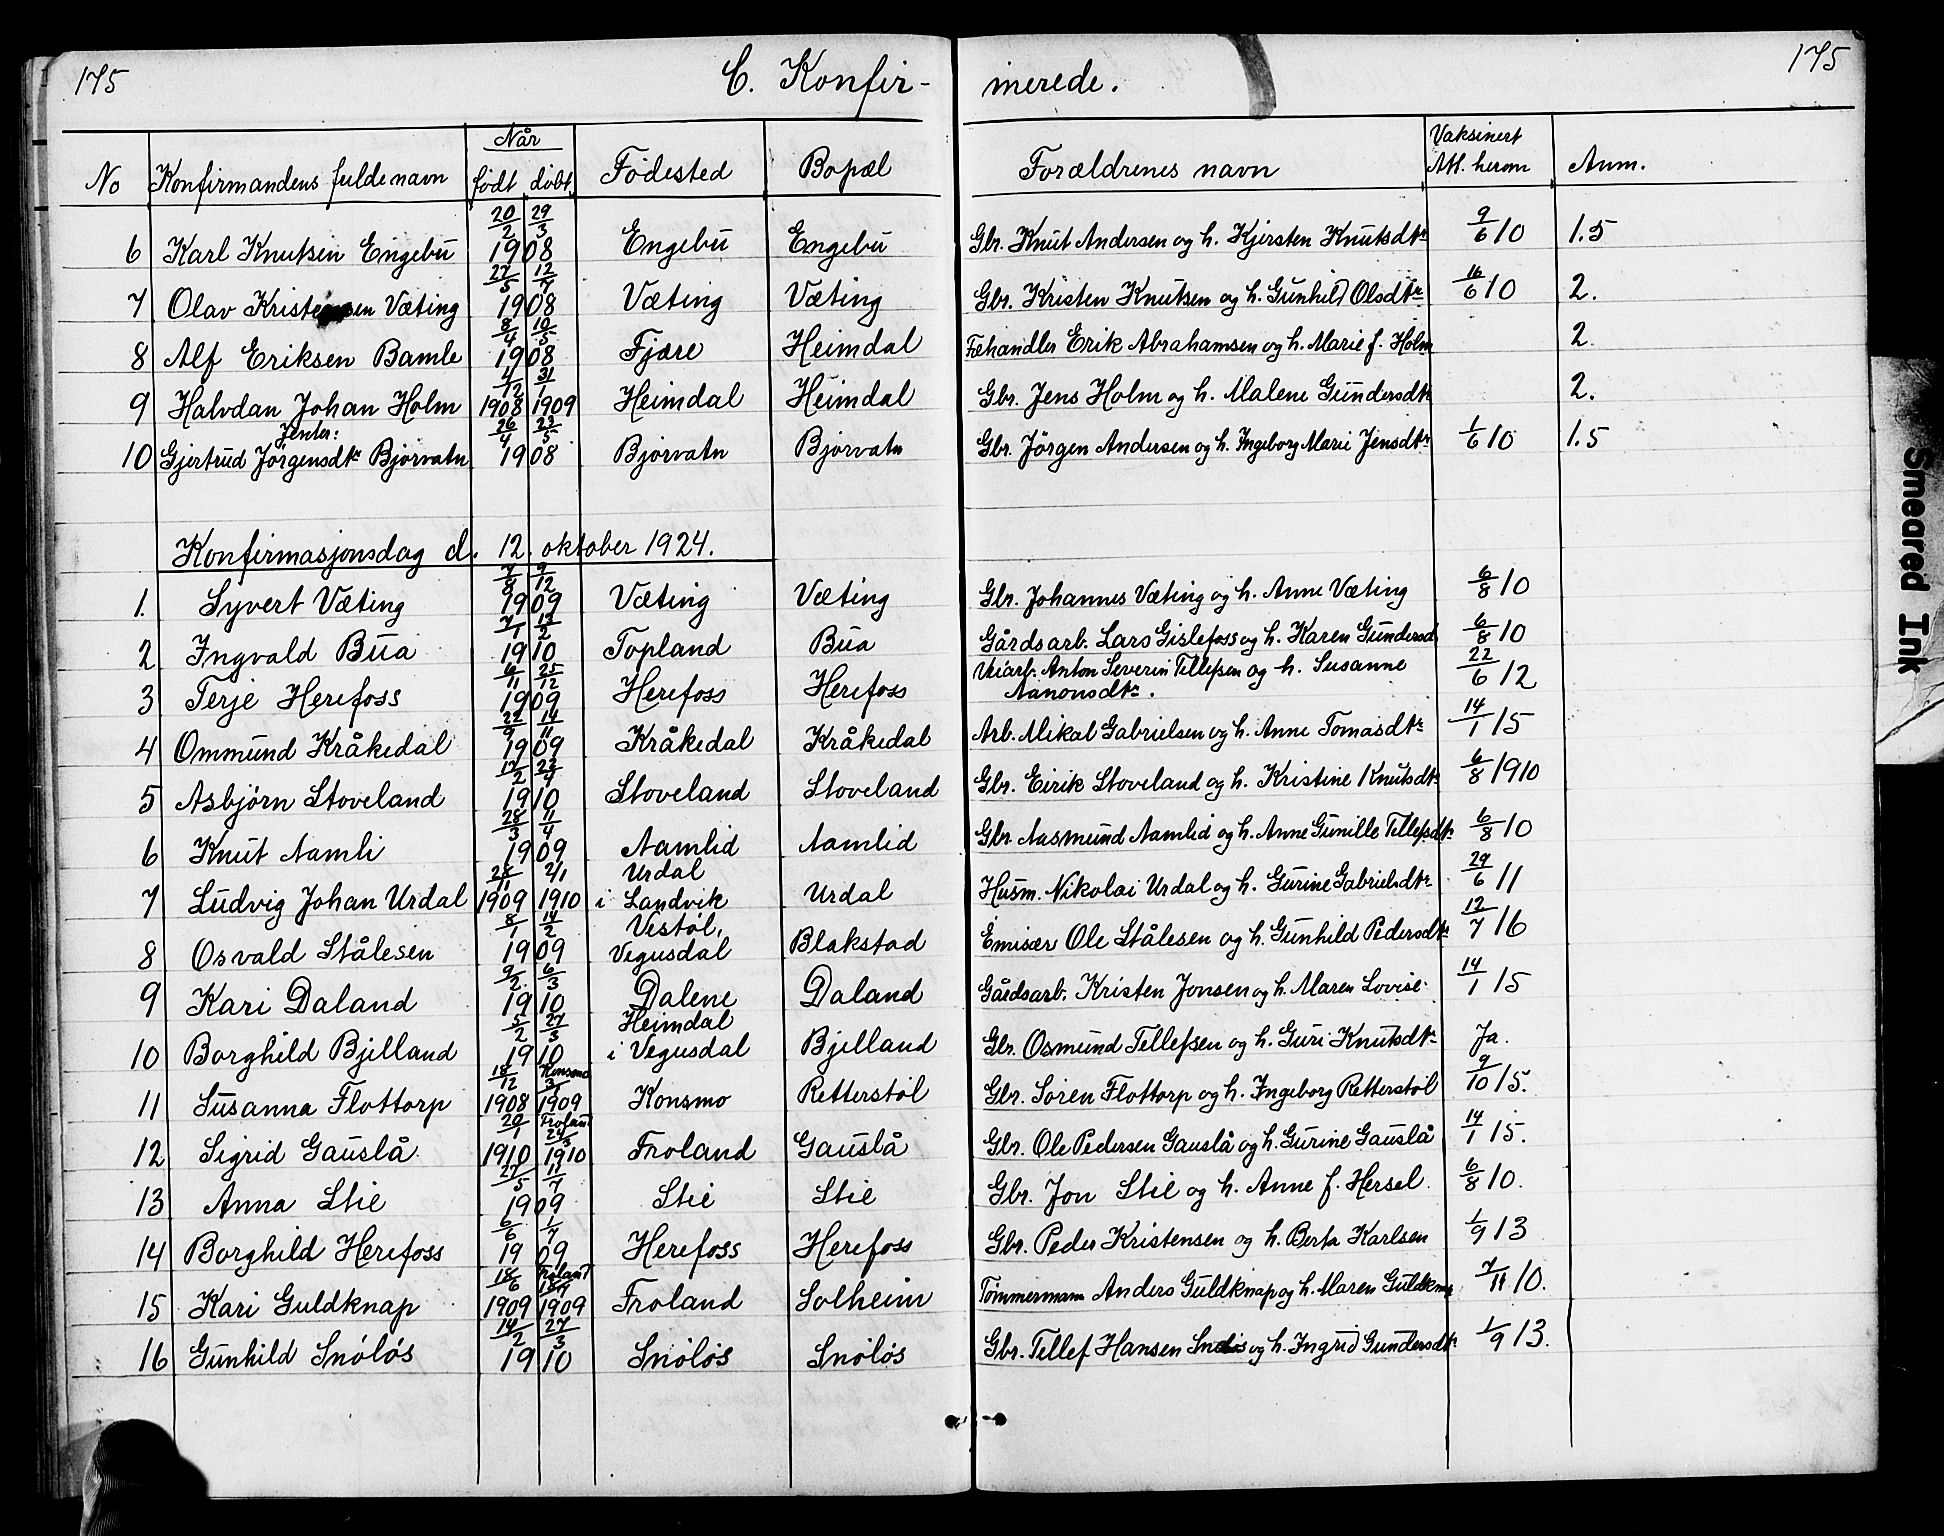 175 C. Konfir- merede. 175
No Konfirmandens fulde navn Når født døbt Fødested Bopæl Forældrenes navn Vaksinert Att. herom Anm.
6 Karl Knutsen Engebu 20/2 29/3 1908 Engebu Engebu Gbr. Knut Andersen og h. Kjersten Knutsdtr 9/6 10 1.5
7 Olav Kristensen Væting 27/5 12/7 1908 Væting Væting Gbr. Kristen Knutsen og h. Gunhild Olsdtr 16/6 10 2.
8 Alf Eriksen Bamle 8/4 10/5 1908 Fjære Heimdal Fehandler Erik Abrahamsen og h. Marie f. Holm 2.
9 Halvdan Johan Holm 4/12 1908 31/1 1909 Heimdal Heimdal Gbr. Jens Holm og h. Malene Gundersdtr 2.
Jenter:
10 Gjertrud Jørgensdtr Bjørvatn 26/4 23/5 1908 Bjørvatn Bjørvatn Gbr. Jörgen Andersen og h. Ingeborg Marie Jensdtr 1/6 10 1.5
Konfirmasjonsdag d. 12. oktober 1924.
1. Syvert Væting 7/8 9/12 1909 Væting Væting Gbr. Johannes Væting og h. Anne Væting 6/8 10
2 Ingvald Bua 7/1 13/2 1910 Topland Bua Gårdsarb. Lars Gislefoss og h. Karen Gundersd 6/8 10
3 Terje Herefoss 6/11 25/12 1909 Herefoss Herefoss Veiarb. Anton Severin Tellefsen og h. Susanne Aanonsdtr. 22/6 12
4 Ommund Kråkedal 22/9 14/11 1909 Kråkedal Kråkedal Arb. Mikal Gabrielsen og h. Anne Tomasdtr 14/1 15
5 Asbjørn Stoveland 17/2 22/4 1910 Stoveland Stoveland Gbr. Eirik Stoveland og h. Kristine Knutsdtr 6/8 1910
6 Knut Aamli 28/3 11/4 1909 Aamlid Aamlid Gbr. Aasmund Aamlid og h. Anne Gunille Tellefsdtr 6/8 10
7 Ludvig Johan Urdal 25/11 1909 2/1 1910 Urdal i Landvik Urdal Husm. Nikolai Urdal og h. Gurine Gabrielsdtr 29/6 11
8 Osvald Stålesen 8/1 14/2 1909 Vestøl, Vegusdal Blakstad Emisær Ole Stålesen og h. Gunhild Pedersdtr 12/7 16
9 Kari Daland 9/2 6/3 1910 Dalene Daland Gårdsarb. Kristen Jonsen og h. Maren Lovise. 14/1 15
10 Borghild Bjelland 5/2 27/3 1910 Heimdal i Vegusdal Bjelland Gbr. Osmund Tellefsen og h. Guri Knutsdtr Ja.
11 Susanna Flottorp 18/12 1908 Konsmo 1909 Konsmo Retterstøl Gbr. Sören Flottorp og h. Ingeborg Retterstøl 9/10 15.
12 Sigrid Gauslå 20/1 1910 Froland 24/3 1910 Froland Gauslå Gbr. Ole Pedersen Gauslå og h. Gurine Gauslå 14/1 15.
13 Anna Stie 27/5 11/7 1909 Stie Stie Gbr. Jon Stie og h. Anne f. Hersel. 6/8 10.
14 Borghild Herefoss 6/6 1/7 1909 Herefoss Herefoss Gbr. Peder Kristensen og h. Berta Karlsen 1/9 13
15 Kari Guldknap 18/6 1909 Froland 1909 Froland Solheim Tømmermann Anders Guldknap og h. Maren Guldknap 7/11 10.
16 Gunhild Snøløs 14/2 27/3 1910 Snøløs Snøløs Gbr. Tellef Hansen Snøløs og h. Ingrid Gundersdtr 1/9 13.
Smeared Ink